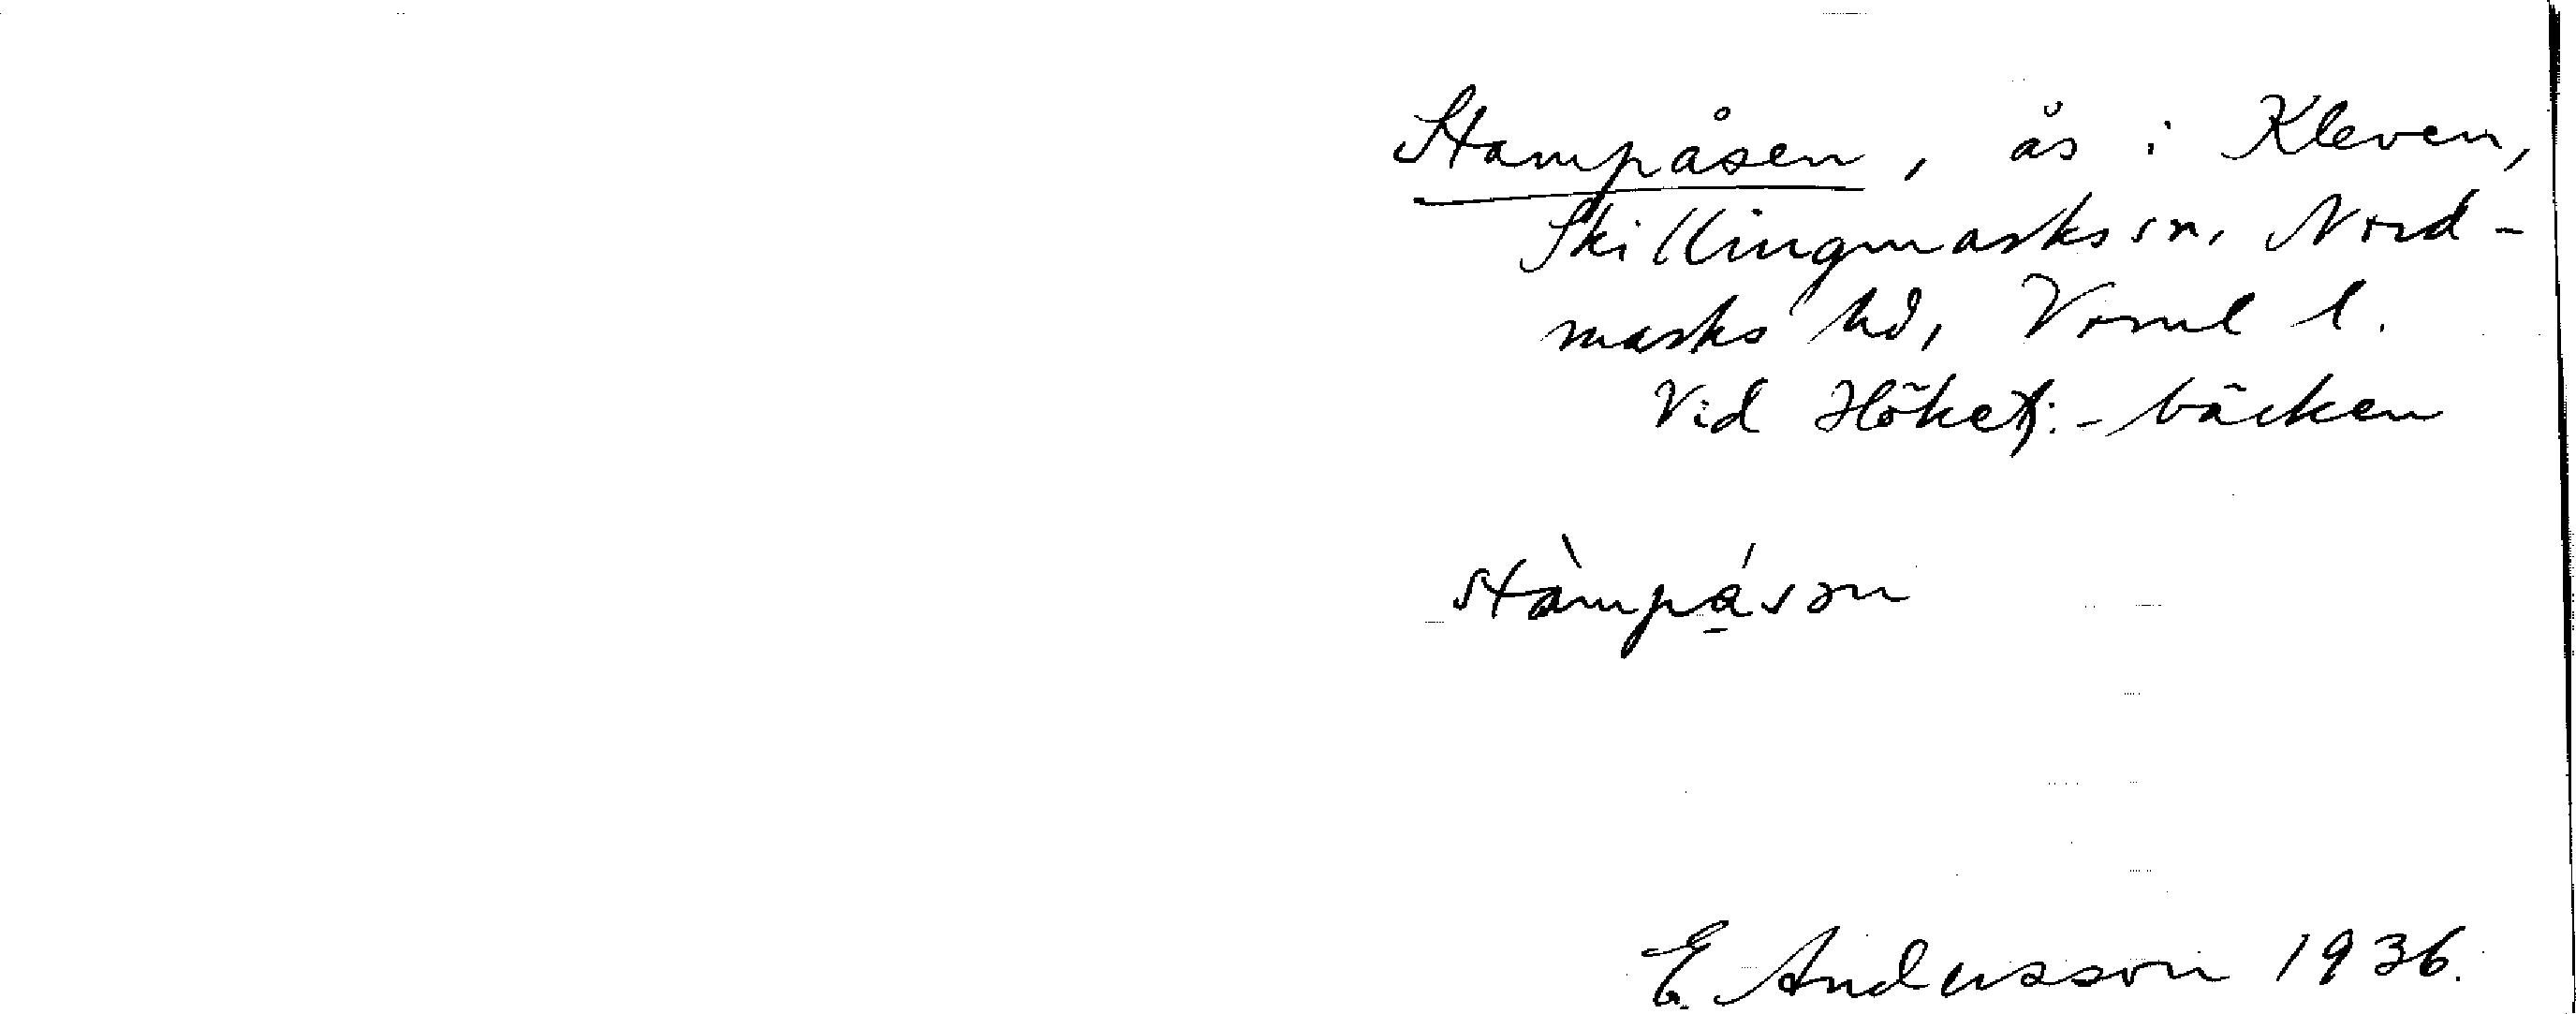 Stampåsen, ås i Kleven,
Skillingmarks sn, Nord-
marks hd, Vrml l.
Vid -bäcken
stàmpásən
E. Andersson 1936.